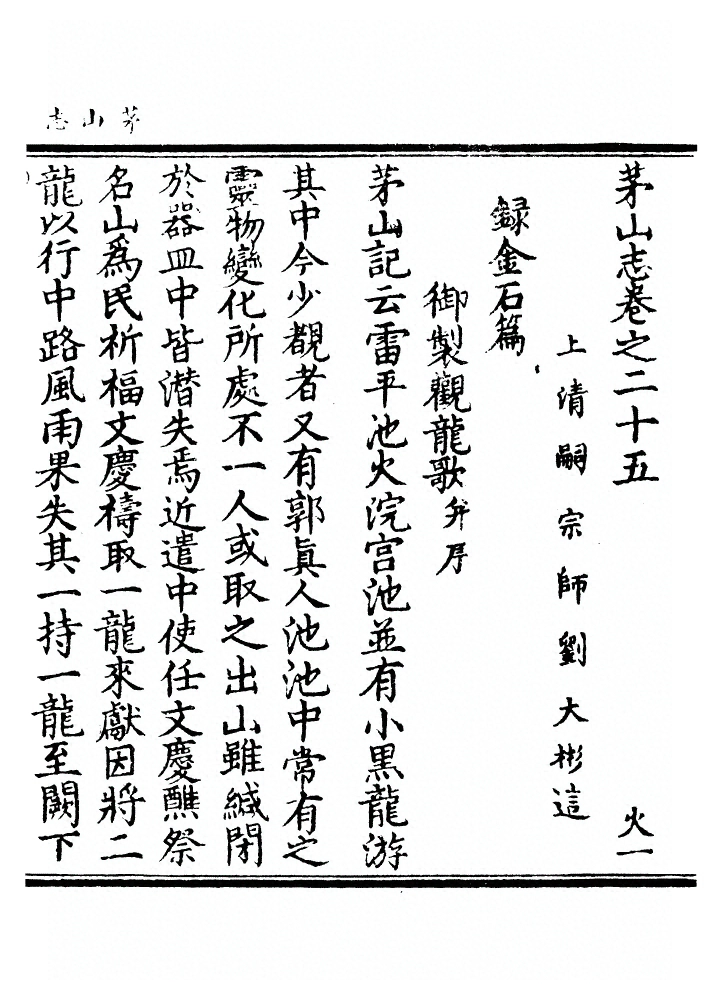 茅山志
茅山志卷之二十五 火一
上清嗣宗師劉大彬造
録金石篇
御製觀龍歌并序
茅山記云雷平池火浣宫池並有小黒龍游
其中今少覩者又有郭真人池池中常有之
靈物變化所處不一人或取之出山雖緘閉
於器皿中皆潜失焉近遣中使任文慶醮祭
名山為民祈福文慶禱取一龍來獻因將二
龍以行中路風雨果失其一持一龍至闕下